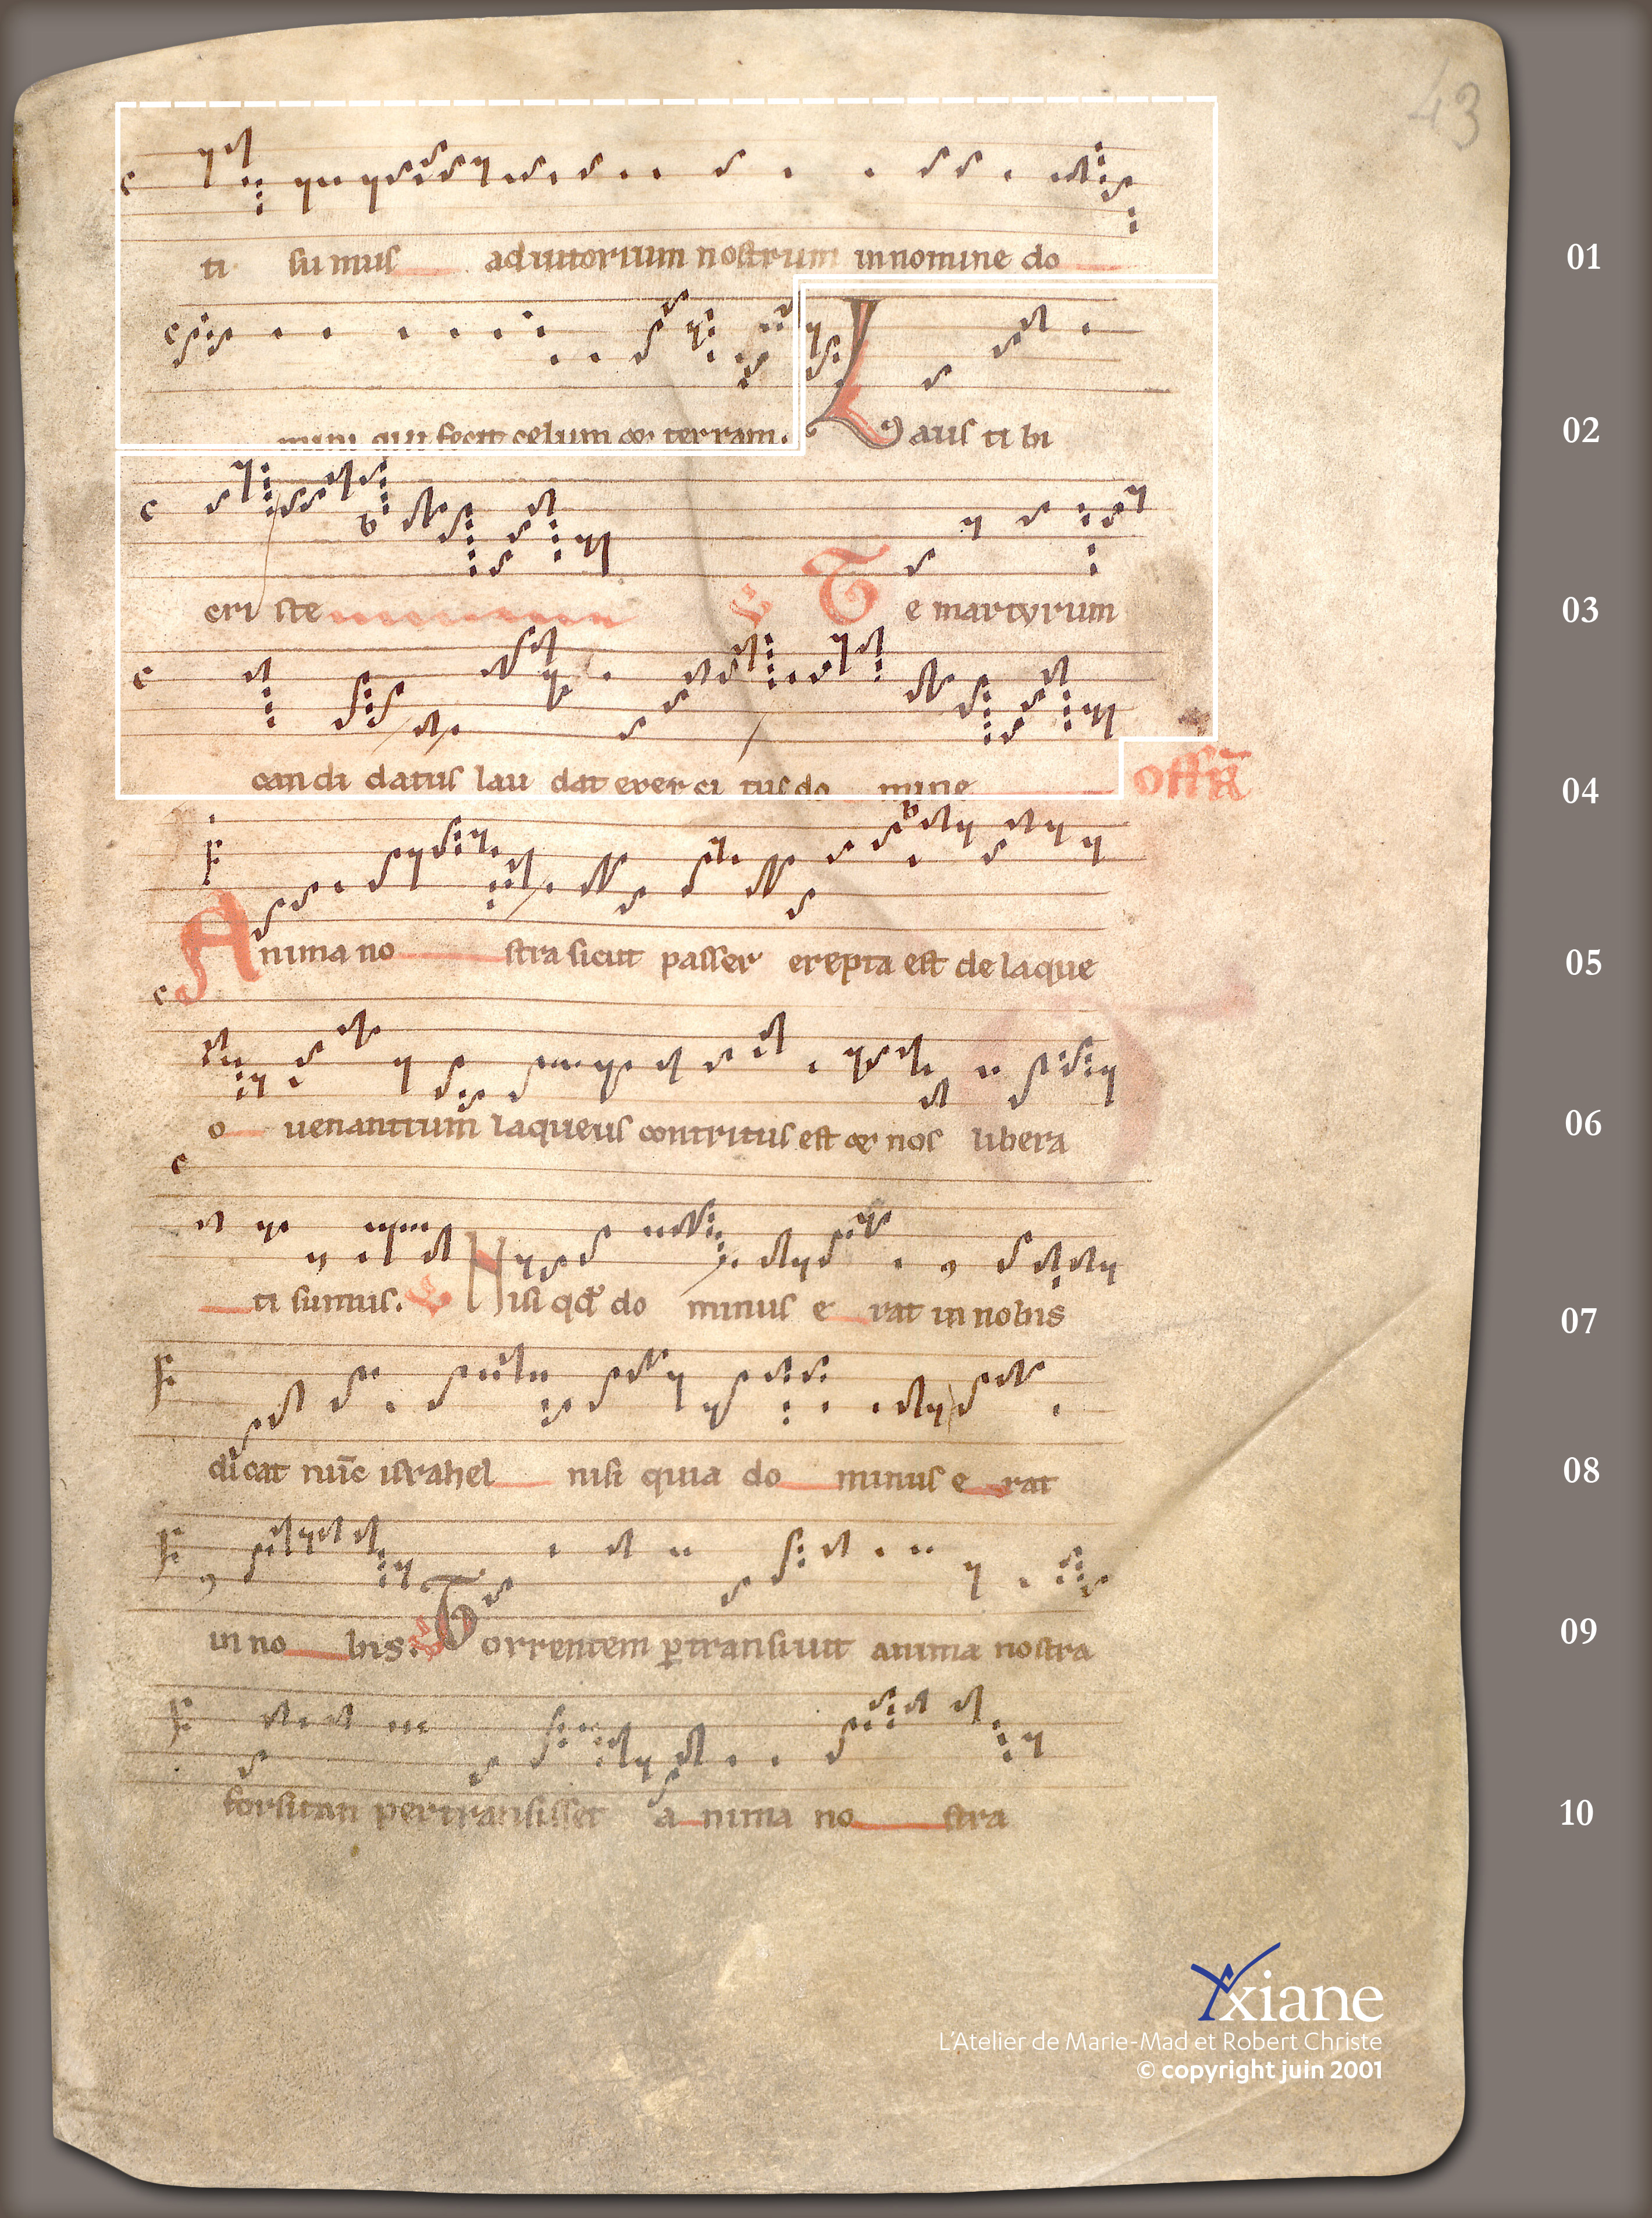 43
ti sumus adiutorium nostrum in nomine do
01
minum qui fecit celum et terram.
Laus tibi
02
cristе
Te martyrum
03
candidatus laudat exercitus domine
offr̄
04
Anima nostra sicut passer erepta est de laque
05
o uenantium laqueus contritus est et nos libera
06
ti sumus. Nisi qđ do minus e rat in nobis
07
dicat nūc israhel nisi quia do minus e rat
08
in no bis. Torrentem ꝑtransiuit anima nostra
09
forsitan pertransisset a nima no stra
10
Yxiane
L'Atelier de Marie-Mad et Robert Christe
© copyright juin 2001